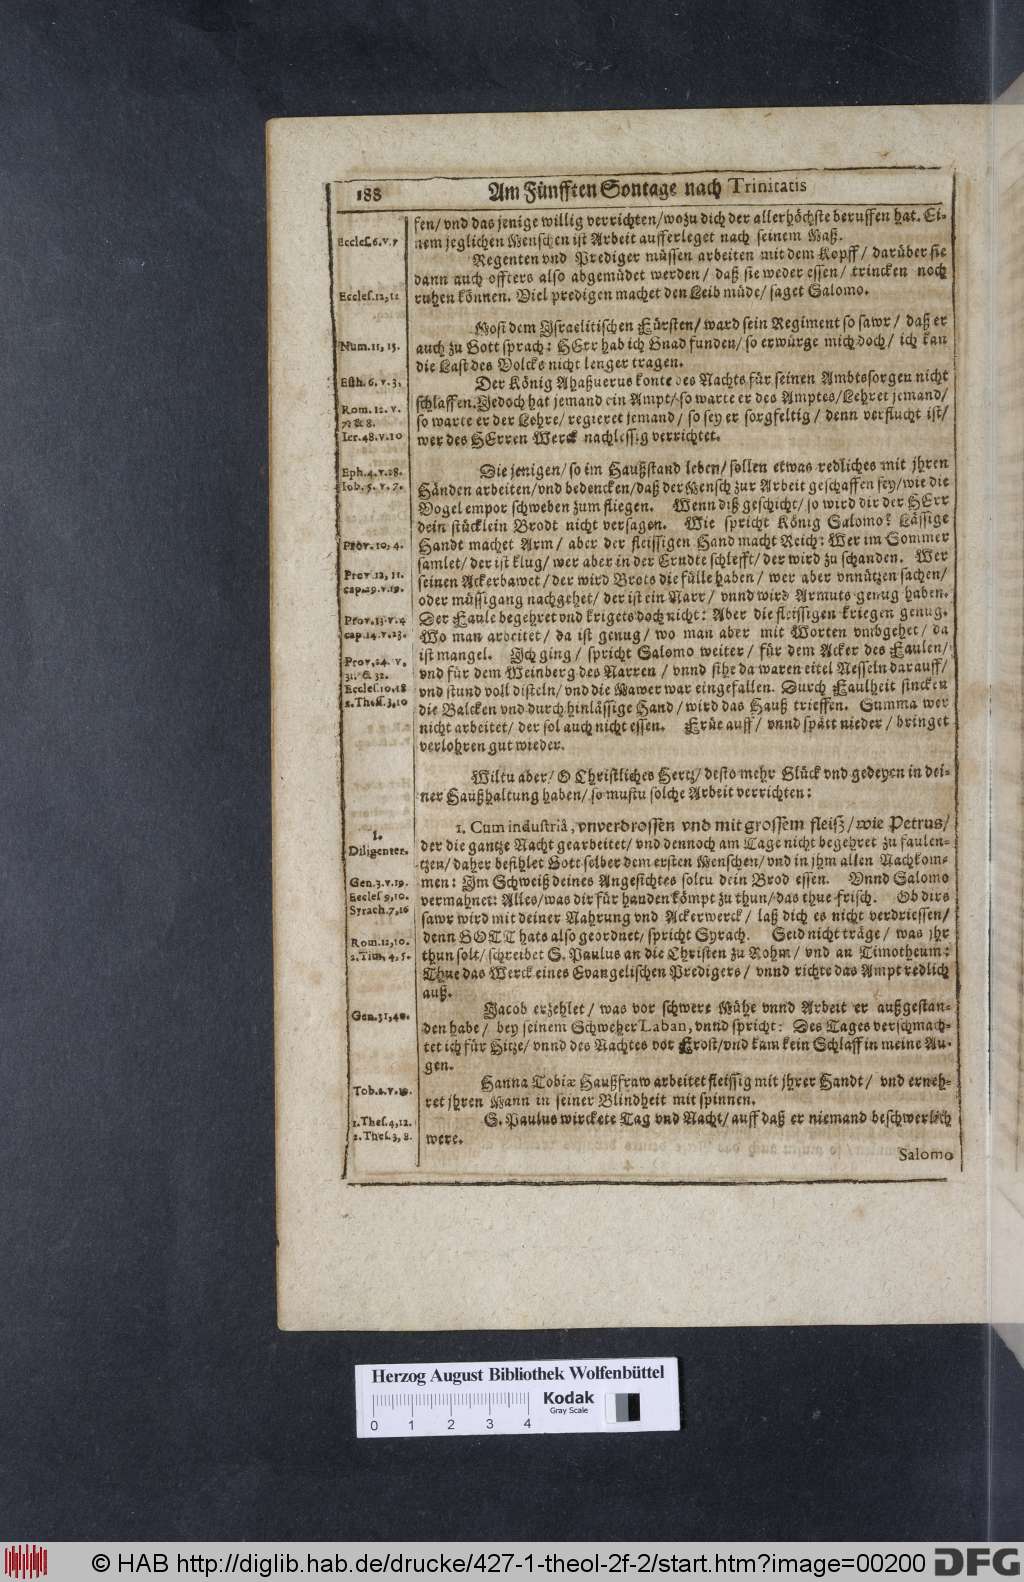 188
Am Fünfften Sontage nach Trinitatis
fen/ vnd das jenige willig verrichten/ wozu dich der allerhöchste beruffen hat. Ei-
Eccles.6.v.7
nem jeglichen Menschen ist Arbeit aufferleget nach seinem Maß.
Regenten vnd Prediger müssen arbeiten mit dem Kopff/ darüber sie
dann auch offters also abgemüdet werden/ daß sie weder essen/ trincken noch
Eccles.12,12
ruhen können. Viel predigen machet den Leib müde/ saget Salomo.
Mosi dem Israelitischen Fürsten/ ward sein Regiment so sawr/ daß er
Num.11, 15.
auch zu Gott sprach: HErr hab ich Gnad funden/ so erwürge mich doch/ ich kan
die Last des Volcks nicht lenger tragen.
Esth. 6. v. 3.
Der König Ahaßuerus konte des Nachts für seinen Ambtssorgen nicht
schlaffen. Jedoch hat jemand ein Ampt/ so warte er des Amptes/ Lehret jemand/
Rom. 12. v.
7. & 8.
so warte er der Lehre/ regieret jemand/ so sey er sorgfeltig/ denn verflucht ist/
Ier.48.v.10
wer des HErren Werck nachlessig verrichtet.
Eph.4.v.28.
Die jenigen/ so im Haußstand leben/ sollen etwas redliches mit jhren
Iob. 5. v. 7.
Händen arbeiten/ vnd bedencken/ daß der Mensch zur Arbeit geschaffen sey/ wie die
Vogel empor schweben zum fliegen. Wenn diß geschicht/ so wird dir der HErr
dein stücklein Brodt nicht versagen. Wie spricht König Salomo? Lässige
Prov. 10, 4.
Handt machet Arm/ aber der fleissigen Hand macht Reich: Wer im Sommer
samlet/ der ist klug/ wer aber in der Erndte schlefft/ der wird zu schanden. Wer
Prov.12, 11.
cap.29.v.19.
seinen Ackerbawet/ der wird Brots die fülle haben/ wer aber vnnützen sachen/
oder müssigang nachgehet/ der ist ein Narr/ vnnd wird Armuts genug haben.
Prov.13.v.4
Der Faule begehret vnd krigets doch nicht: Aber die fleissigen kriegen genug.
cap.14.v.23.
Wo man arbeitet/ da ist genug/ wo man aber mit Worten vmbgehet/ da
ist mangel. Ich ging/ spricht Salomo weiter/ für dem Acker des Faulen/
Prov.24. v.
31. & 32.
vnd für dem Weinberg des Narren/ vnnd sihe da waren eitel Nesseln darauff/
Eccles.10.18
vnd stund voll disteln/ vnd die Mawer war eingefallen. Durch Faulheit sincken
2. Thess. 3,10
die Balcken vnd durch hinlässige Hand/ wird das Hauß trieffen. Summa wer
nicht arbeitet/ der sol auch nicht essen. Früe auff/ vnnd spätt nieder/ bringet
verlohren gut wieder.
Wiltu aber/ O Christliches Hertz/ desto mehr Glück vnd gedeyen in dei-
ner Haußhaltung haben/ so mustu solche Arbeit verrichten:
1.
Diligenter.
1. Cum industriâ, vnverdrossen vnd mit grossem fleiß/ wie Petrus/
der die gantze Nacht gearbeitet/ vnd dennoch am Tage nicht begehret zu faulen-
tzen/ daher befihlet Gott selber dem ersten Menschen/ vnd in jhm allen Nachkom-
Gen.3.v.19.
men: Im Schweiß deines Angesichtes soltu dein Brod essen. Vnnd Salomo
Eccles 9,10.
vermahnet: Alles/ was dir für handen kömpt zu thun/ das thue frisch. Ob dirs
Syrach.7,16
sawr wird mit deiner Nahrung vnd Ackerwerck/ laß dich es nicht verdriessen/
denn GOTT hats also geordnet/ spricht Syrach. Seid nicht träge/ was jhr
Rom.12,10.
2. Tim, 4, 5.
thun solt/ schreibet S. Paulus an die Christen zu Rohm/ vnd an Timotheum:
Thue das Werck eines Evangelischen Predigers/ vnnd richte das Ampt redlich
auß.
Gen.31,40.
Jacob erzehlet/ was vor schwere Mühe vnnd Arbeit er außgestan-
den habe/ bey seinem Schweher Laban, vnnd spricht: Des Tages verschmach-
tet ich für Hitze/ vnnd des Nachtes vor Frost/ vnd kam kein Schlaff in meine Au-
gen.
Tob.2.v.19.
Hanna Tobiæ Haußfraw arbeitet fleissig mit jhrer Handt/ vnd erneh-
ret jhren Mann in seiner Blindheit mit spinnen.
1.Thes.4,12.
2. Thes. 3, 8.
S. Paulus wirckete Tag vnd Nacht/ auff daß er niemand beschwerlich
were.
Salomo
Herzog August Bibliothek Wolfenbüttel
Kodak
Gray Scale
0 1 2 3 4
© HAB http://diglib.hab.de/drucke/427-1-theol-2f-2/start.htm?image=00200
DFG